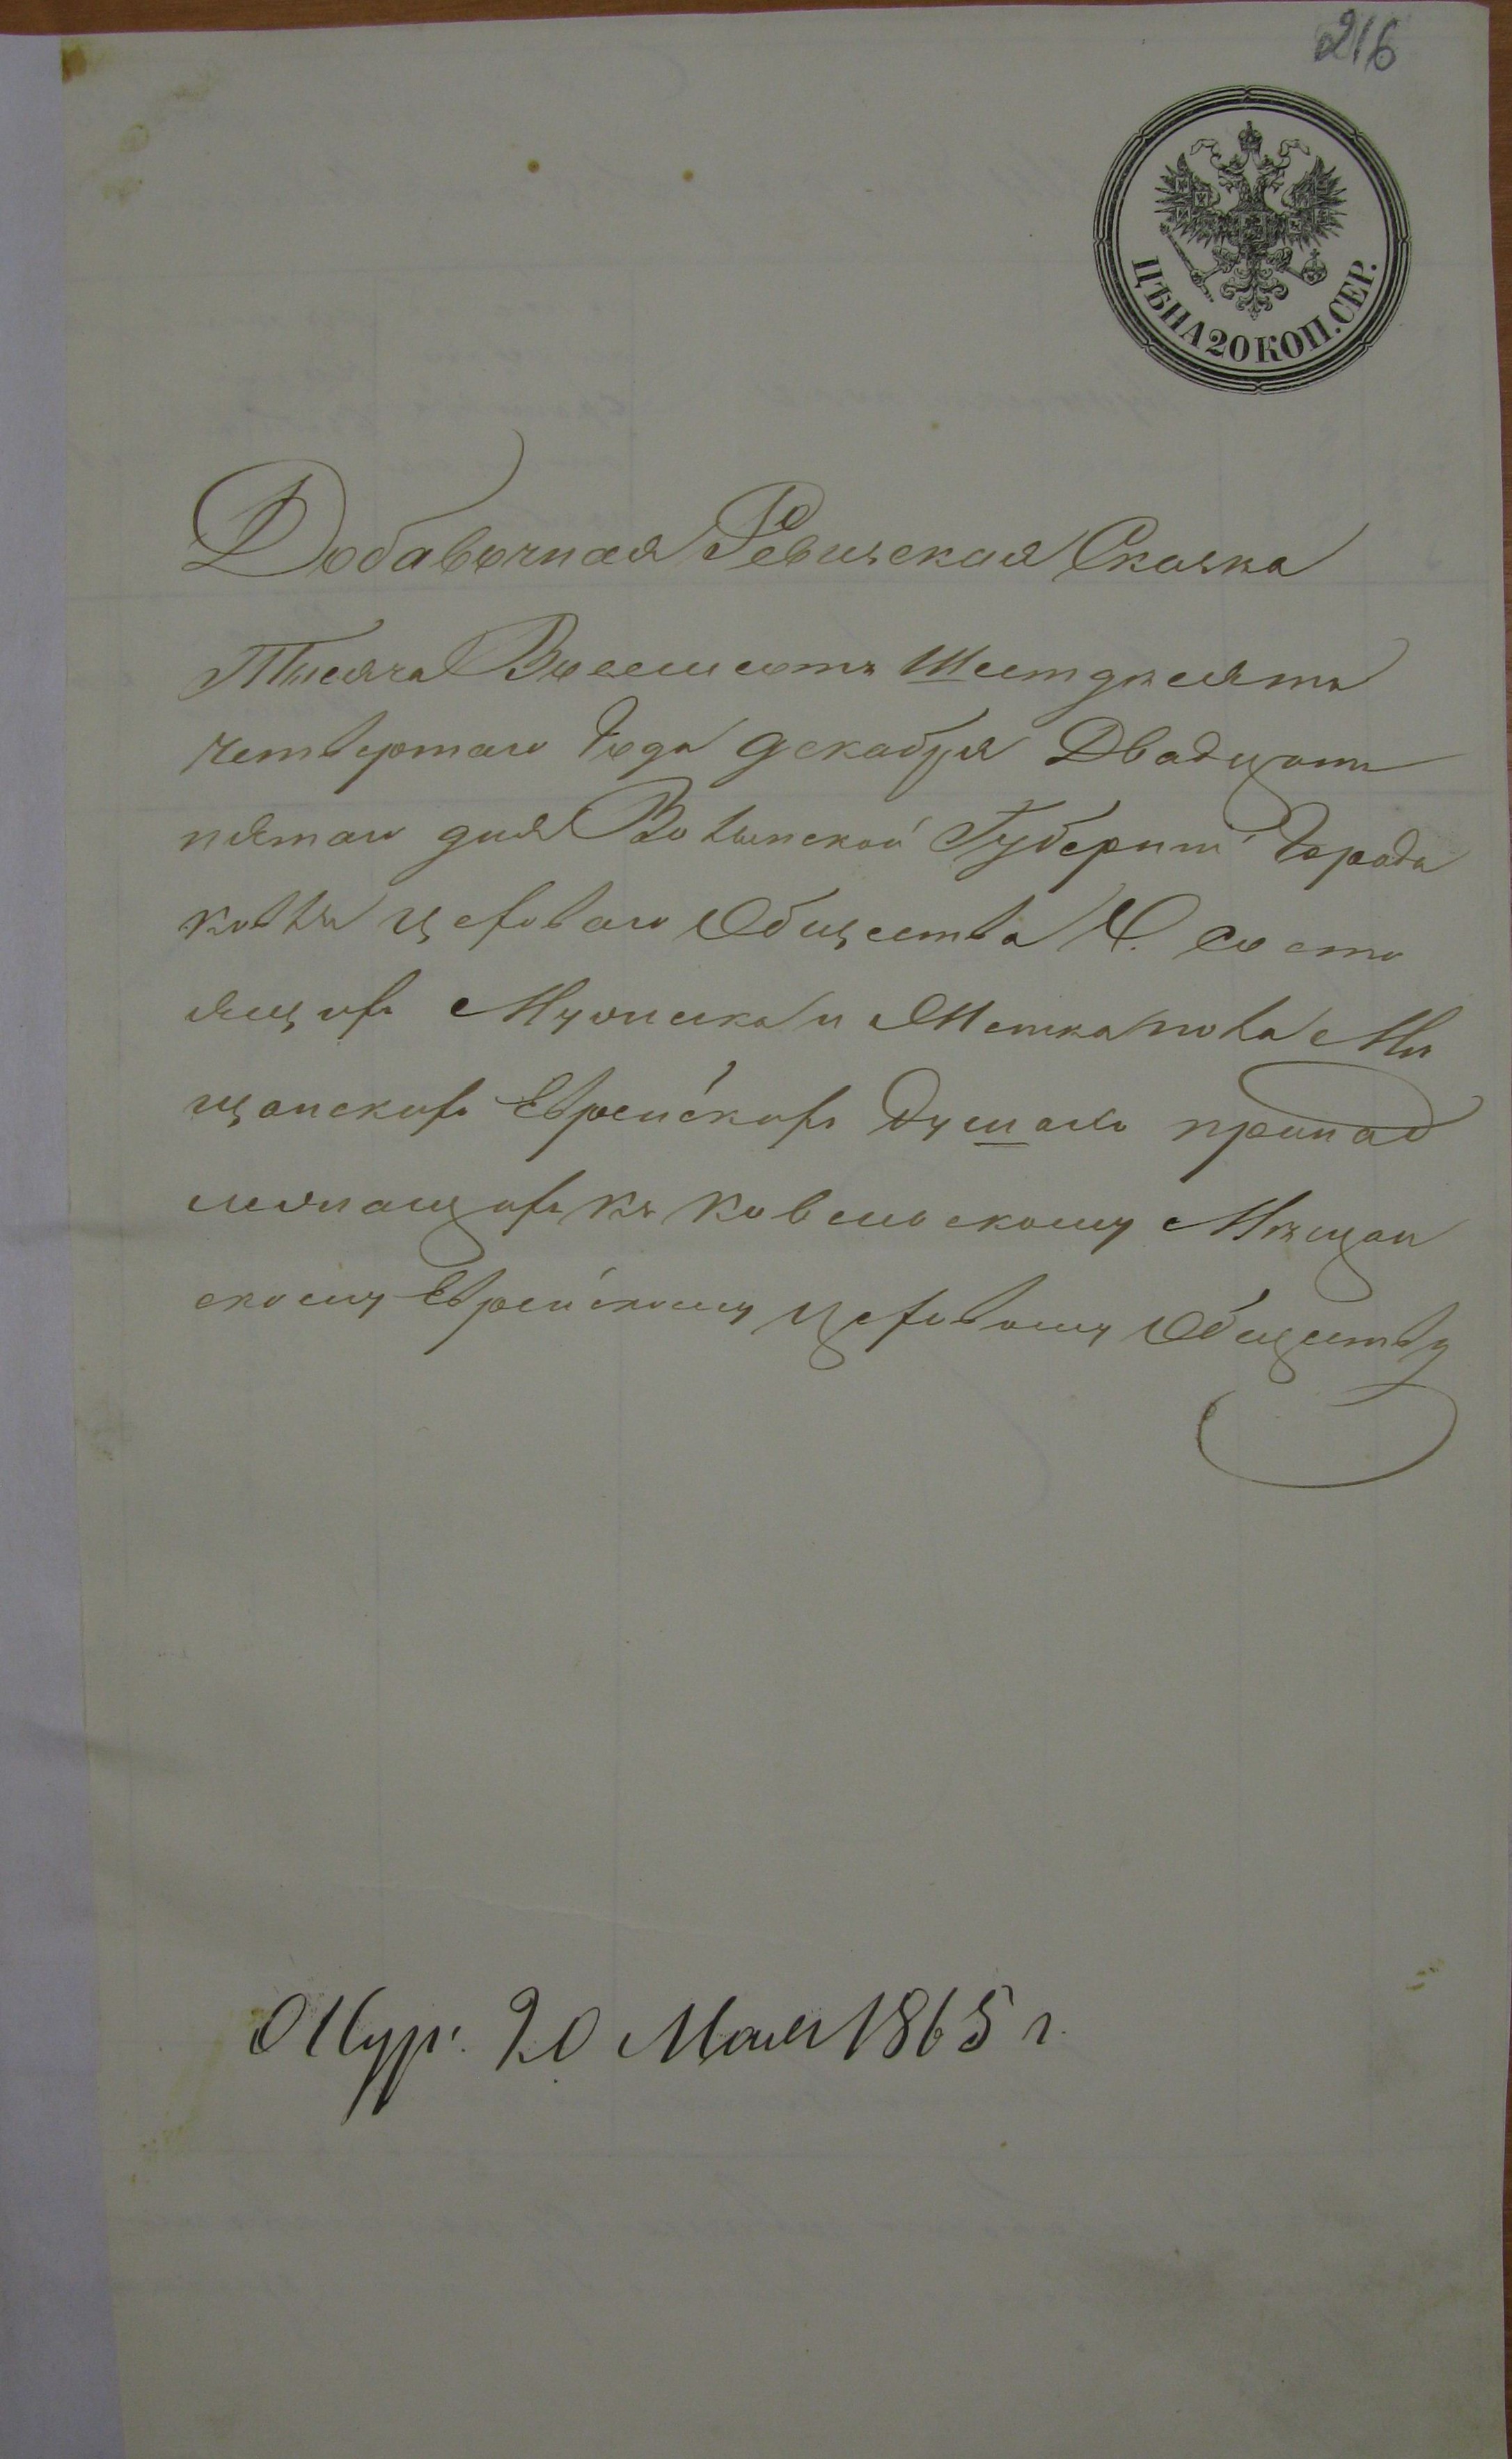 216
ЦѢНА 20 КОП. СЕР.
Добавочная Ревизская Сказка
Тысяча Восемсотъ Шестдесятъ
четвертаго Года декабря Двадцать
пятаго дня Волынской Губернии Города
Ковля цеховаго Общества О состо
ящихъ Мужиска и Женска пола Мѣ
щанскихъ Еврейскихъ душахъ принад
лежащихъ къ Ковельскому Мѣщан
скому Еврейскому цеховому Обществу
Жур: 20 Мая 1865 г.